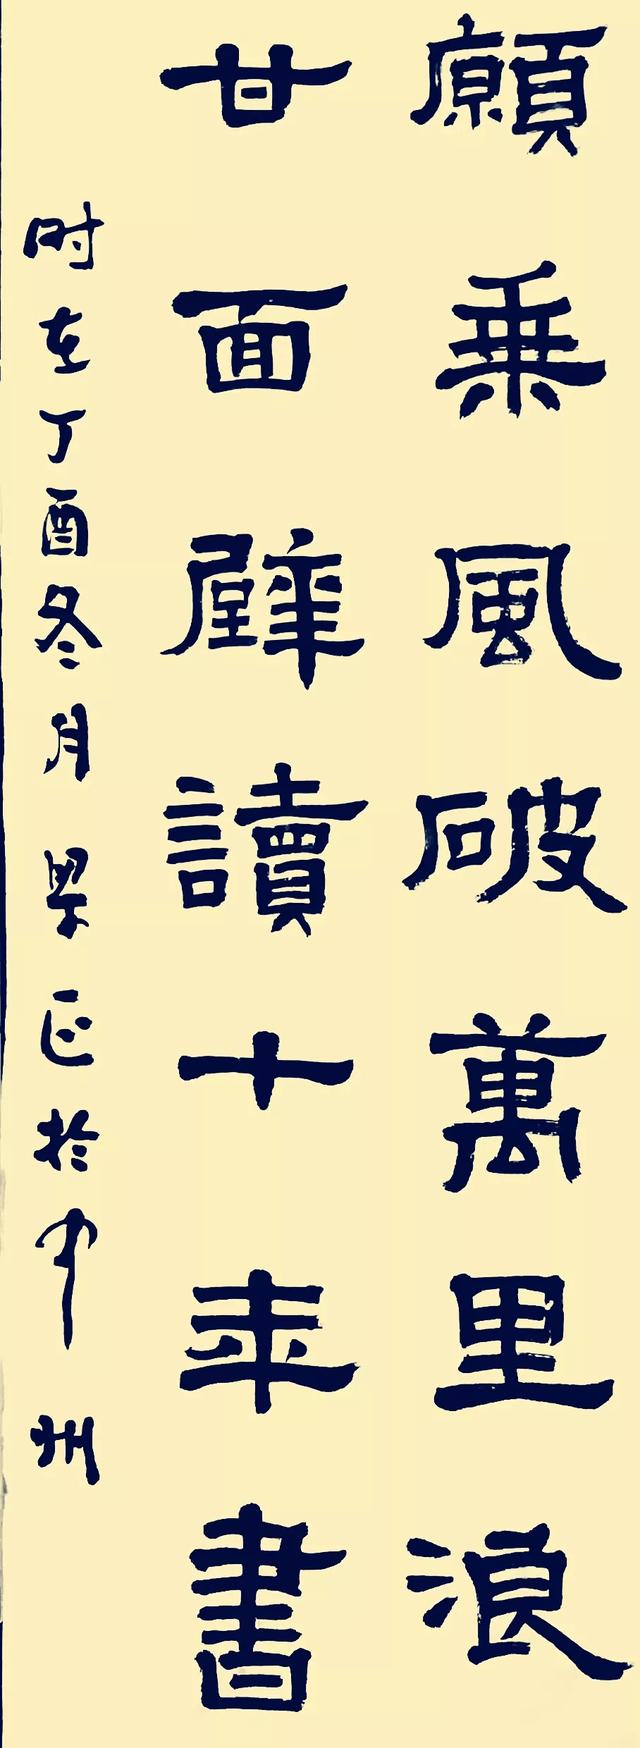 願乘風破萬里浪
甘面壁讀十年書
时在丁酉冬月正於中州